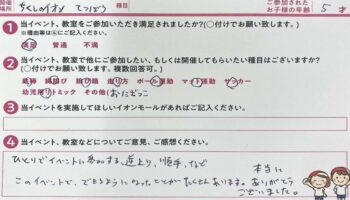 開催場所 ちくしのイオン てつぼう
ご参加された
お子様の年齢 5才
1 当イベント、教室をご参加いただき満足されましたか?(○付けでお願い致します。)
※理由等は④にご記入ください。
満足 普通 不満
2 当イベント、教室で他にご参加したい、もしくは開催してもらいたい種目はございますか?
(○付けでお願い致します。複数回答可。)
鉄棒 縄跳び 跳び箱 走り方 ボール運動 マット運動 サッカー
幼児用リトミック その他(おにごっこ
3 当イベントを実施してほしいイオンモールがあればご記入ください。
4 当イベント、教室などについてご意見、ご感想ください。
ひとりでイベントに参加する、逆上り、順手、など
このイベントで、できるようになったことがたくさんあります。
本当に
ありがとう
ございました。